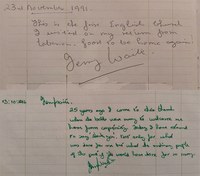 23rd November 1991.
This is the first English church
I worshipped in on my return from
Lebanon. Good to be home again.
Terry Waite
25 years ago I came to this church
when the bells were rung to welcome me
home from captivity. Today I have returned
to say thank you. Not only for what
was done for me but what the ordinary people
of the parish have done for so many.